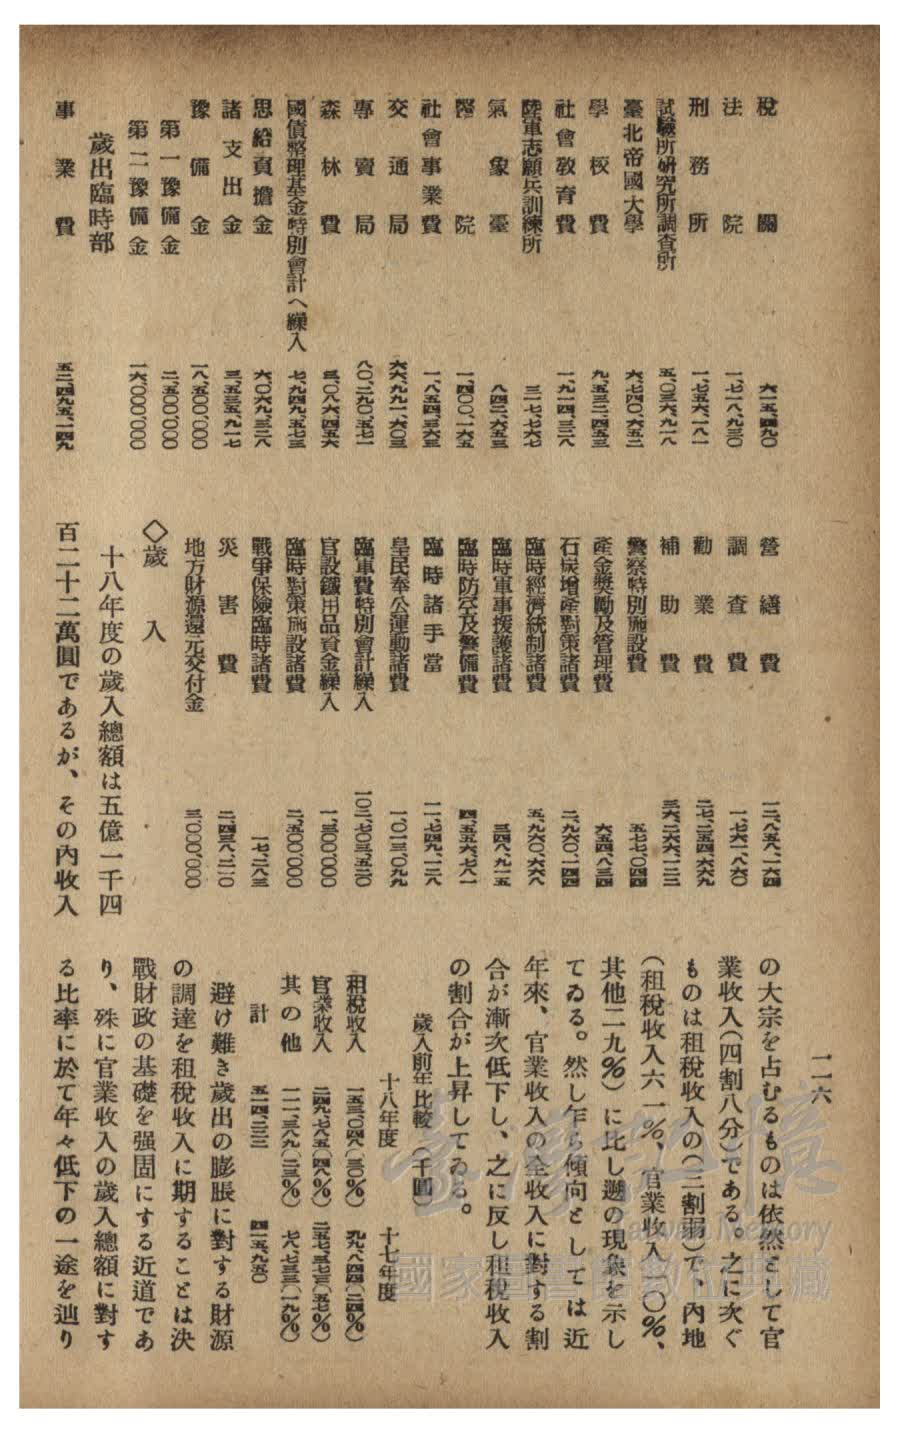 一二六
稅關 六一五、四九〇
法院 一、七一八、九三〇
刑務所 一、七五六、一八一
試驗所硏究所調査所 五、〇三六、九一八
臺北帝國大學 六、七四〇、六五二
學校費 九、五三二、四五三
社會敎育費 一、九一四、三二八
陸軍志願兵訓練所 三一七、七六七
氣象臺 八四二、六五三
醫院 一、四〇〇、一六五
社會事業費 一、八五四、三六三
交通局 六六、九九一、六〇三
專賣局 八〇、二九〇、五七一
森林費 三、〇八六、四五六
國債整理基金特別會計へ繰入 七、九四九、五七三
恩給負擔金 六、〇六九、三二八
諸支出金 三、五三五、九一七
豫備金 一八、五〇〇、〇〇〇
第一豫備金 二、五〇〇、〇〇〇
第二豫備金 一六、〇〇〇、〇〇〇
歲出臨時部
事業費 五二、四九五、一四九
營繕費 一二、八五八、一六四
調查費 一、七六一、八六〇
勸業費 二七、二五四、六六九
補助費 三六、二六六、一二三
警察特別施設費 五七七、〇四四
產金奬勵及管理費 六五四、八三四
石炭增產對策諸費 二、九六〇、一四四
臨時經濟統制諸費 五、九六〇、六六八
臨時軍事援護諸費 三四八、九一五
臨時防空及警備費 四、五五六、七八一
臨時諸手當 一一、七四九、一二八
皇民奉公運動諸費 一、〇一三、〇九九
臨軍費特別會計繰入 一〇二、七〇三、五二〇
官設鐵用品資金繰入 一、三〇〇、〇〇〇
臨時對策施設諸費 二、五〇〇、〇〇〇
戰爭保險臨時諸費 一七、二八三
災害費 二、四三八、二一〇
地方財源還元交付金 三、〇〇〇、〇〇〇
◇歲入
十八年度の歲入總額は五億一千四
百二十二萬圓であるが、その內收入
の大宗を占むるものは依然として官
業收入(四割八分)である。之に次ぐ
ものは租稅收入の(三割弱)で、內地
(租稅收入六一%、官業收入一〇%、
其他二九%)に比し遡の現象を示し
てゐる。然し乍ら傾向としては近
年來、官業收入の全收入に對する割
合が漸次低下し、之に反し租稅收入
の割合が上昇してゐる。
歲入前年比較(千圓)
十八年度 十七年度
租稅收入 一五三、〇四八(三〇%) 九九、八四四(二四%)
官業收入 二四九、七八五(四八%) 二三七、三七三(五七%)
其の他 一一一、三八九(二三%) 七八、七三三(一九%)
計 五一四、二二三 四一五、九五〇
避け難き歲出の膨脹に對する財源
の調達を租稅收入に期することは決
戰財政の基礎を强固にする近道であ
り、殊に官業收入の歲入總額に對す
る比率に於て年々低下の一途を辿り
臺灣記憶
Taiwan Memory
國家圖書館數位典藏